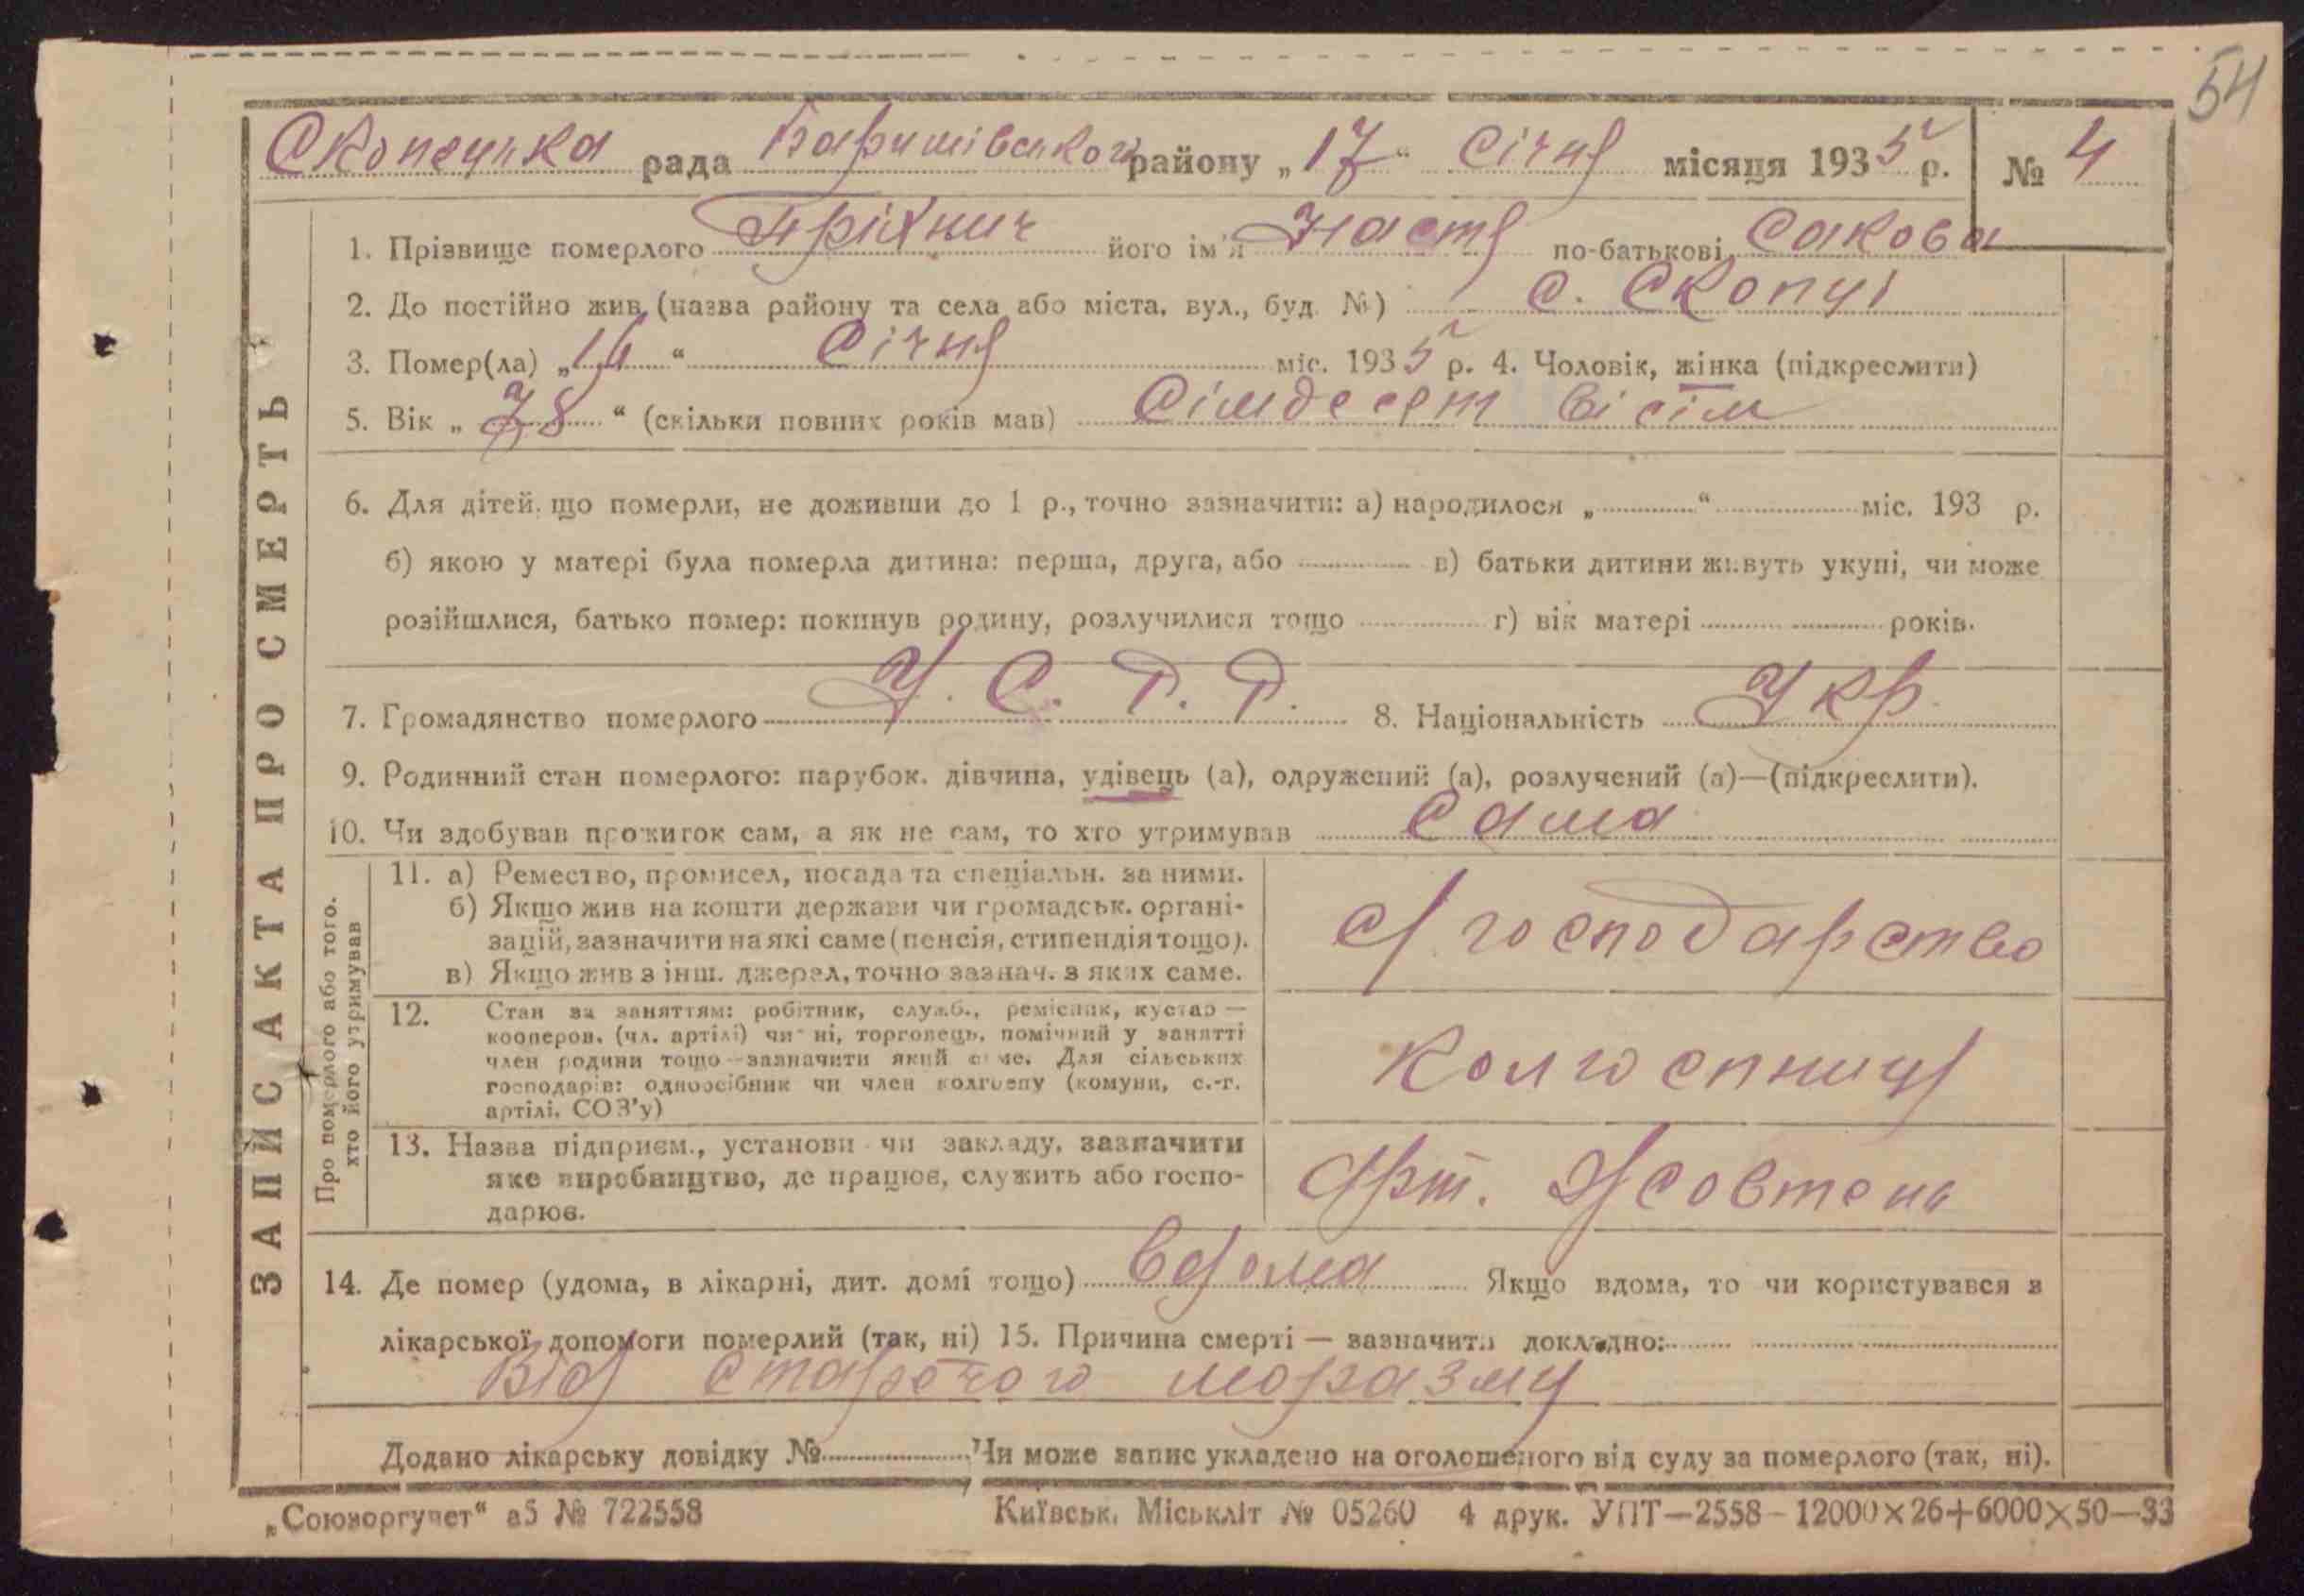 54
Скопецька рада Баришівського району „17“ Січня місяця 1935 р. № 4
1. Прізвище померлого його ім'я Настя по-батькові Сакова
2. До постійно жив (назва району та села або міста, вул., буд. №) С. Скопці
3. Помер(ла) „14“ Січня міс. 1935 р. 4. Чоловік, жінка (підкреслити)
5. Вік „78“ (скільки повних років мав) Сімдесят вісім
6. Для дітей, що померли, не доживши до 1 р., точно зазначити: а) народилося „ “ міс. 193 р.
б) якою у матері була померла дитина: перша, друга, або в) батьки дитини живуть укупі, чи може
розійшлися, батько помер: покинув родину, розлучилися тощо г) вік матері років.
7. Громадянство померлого У. С. Р. Р. 8. Національність Укр.
9. Родинний стан померлого: парубок, дівчина, удівець (а), одружений (а), розлучений (а)—(підкреслити).
10. Чи здобував прожиток сам, а як не сам, то хто утримував Сама
ЗАПИС АКТА ПРО СМЕРТЬ
Про померлого або того, хто його утримував
11. а) Ремество, промисел, посада та спеціальн. за ними.
б) Якщо жив на кошти держави чи громадськ. органі-
зацій, зазначити на які саме (пенсія, стипендія тощо).
в) Якщо жив з інш. джерел, точно зазнач. з яких саме.
с/господарство
12. Стан за заняттям: робітник, служб., ремісник, кустар—
кооперов. (чл. артілі) чи ні, торговець, помічний у занятті
член родини тощо—зазначити який саме. Для сільських
господарів: одноосібник чи член колгоспу (комуни, с.-г.
артілі, СОЗ'у)
Колгоспниця
13. Назва підприєм., установи чи закладу, зазначити
яке виробництво, де працює, служить або госпо-
дарює.
Арт. Жовтень
14. Де помер (удома, в лікарні, дит. домі тощо) вдома Якщо вдома, то чи користувався з
лікарської допомоги померлий (так, ні) 15. Причина смерті — зазначити докладно:
Від старечого моразму
Додано лікарську довідку № Чи може запис укладено на оголошеного від суду за померлого (так, ні).
„Союзоргучет“ а5 № 722558 Київськ. Міськліт № 05260 4 друк. УПТ—2558—12000×26+6000×50—33